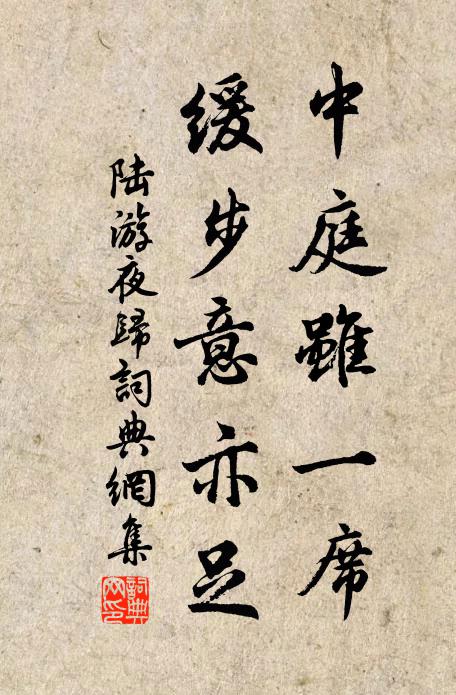 中庭雖一席
緩步意亦足
陆游夜歸詞典網集
詞典网印